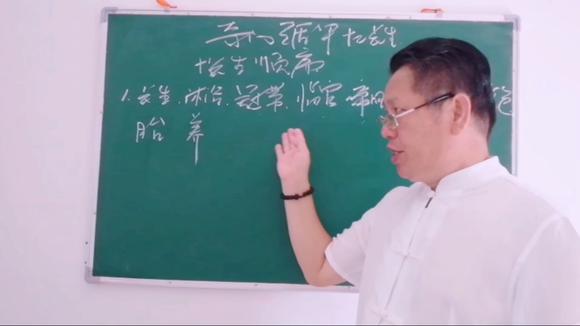 奇门遁甲十二长生
长生顺序
1.长生.沐浴.冠带.临官.帝旺
胎 养